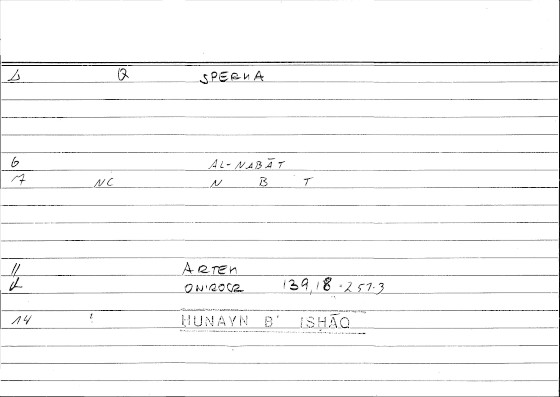 Q SPERMA
6 AL-NABĀT
7 NC N B T
11 ARTEM
ONIROCR 139,18 · 257.3
14 ḤUNAYN B' ISḤĀQ